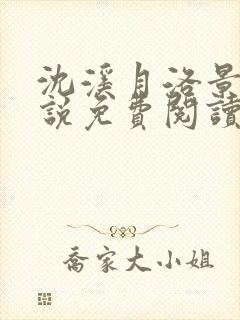 沈溪月洛景
說免費閱讀
喬家大小姐